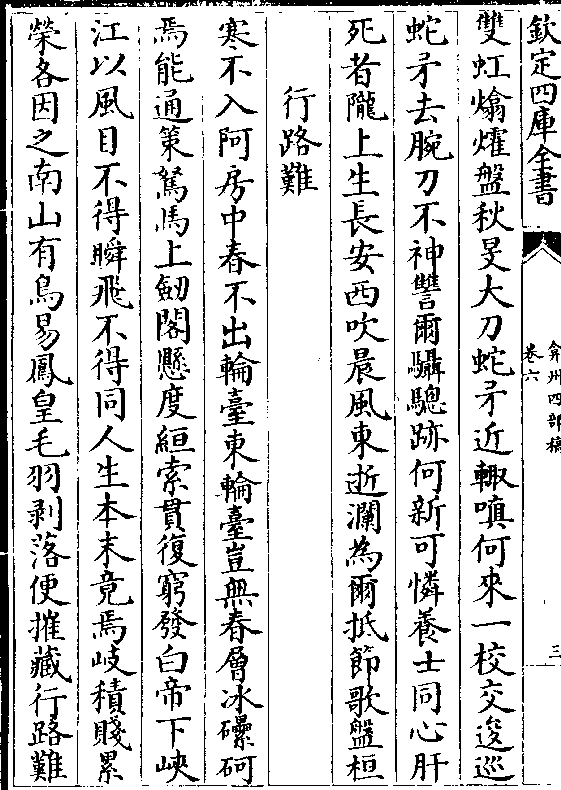 欽定四庫全書
弇州四部稿
卷六
三
雙虹熻爚盤秋旻大刀蛇矛近輙嗔何來一校交逡巡
蛇矛去腕刀不神讐爾驌驄跡何新可憐養士同心肝
死者隴上生長安西吹晨風東逝瀾為爾抵節歌盤桓
行路難
寒不入阿房中春不出輪臺東輪臺豈無春層冰礧砢
焉能通策駑馬上劒閣懸度絙索貫復窮發白帝下峽
江以風目不得瞬飛不得同人生本末竟焉岐積賤累
榮各因之南山有鳥易鳳皇毛羽剥落便摧藏行路難